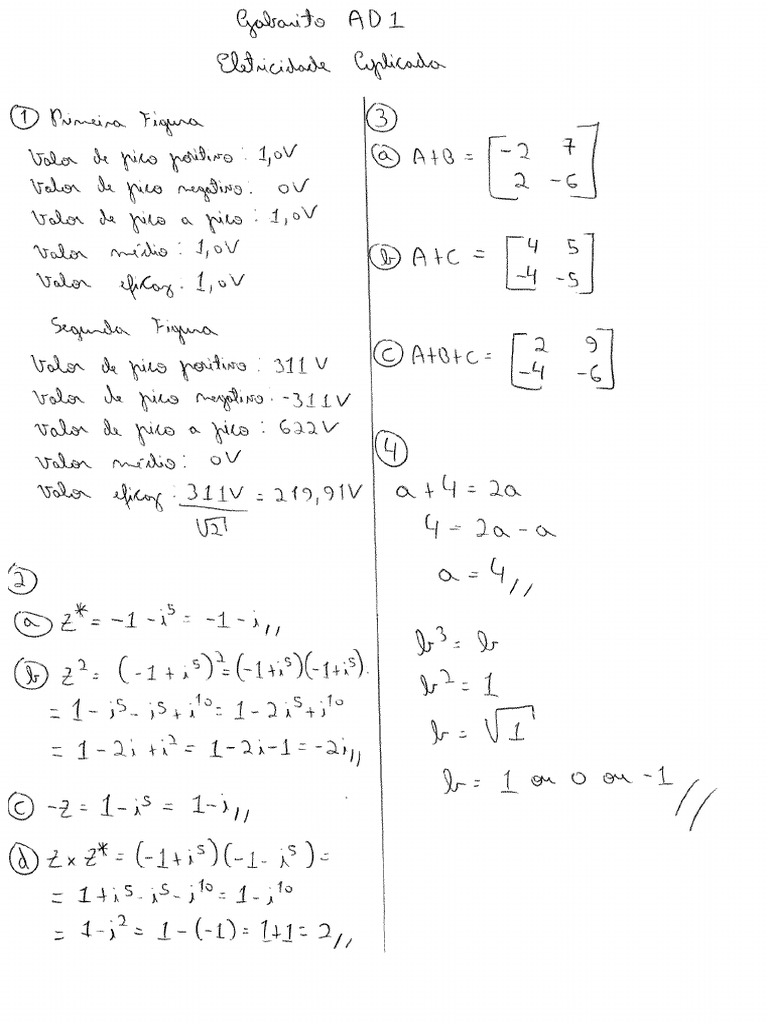 Gabarito AD1
Eletricidade Aplicada
① Primeira Figura
Valor de pico positivo: 1,0V
Valor de pico negativo: 0V
Valor de pico a pico: 1,0V
Valor médio: 1,0V
Valor eficaz: 1,0V
Segunda Figura
Valor de pico positivo: 311V
Valor de pico negativo: -311V
Valor de pico a pico: 622V
Valor médio: 0V
Valor eficaz: 311V/√2 = 219,91V
②
ⓐ z* = -1 - i⁵ = -1 - i//
ⓑ z² = (-1 + i⁵)² = (-1+i⁵)(-1+i⁵).
= 1 - i⁵ - i⁵ + i¹⁰ = 1 - 2i⁵ + i¹⁰
= 1 - 2i + i² = 1 - 2i - 1 = -2i//
ⓒ -z = 1 - i⁵ = 1 - i//
ⓓ z × z* = (-1 + i⁵)(-1 - i⁵) =
= 1 + i⁵ - i⁵ - i¹⁰ = 1 - i¹⁰
= 1 - i² = 1 - (-1) = 1+1 = 2//
③
ⓐ A+B = [-2 7
2 -6]
ⓑ A+C = [4 5
-4 -5]
ⓒ A+B+C = [2 9
-4 -6]
④
a + 4 = 2a
4 = 2a - a
a = 4//
b³ = b
b² = 1
b = √1
b = 1 ou 0 ou -1//